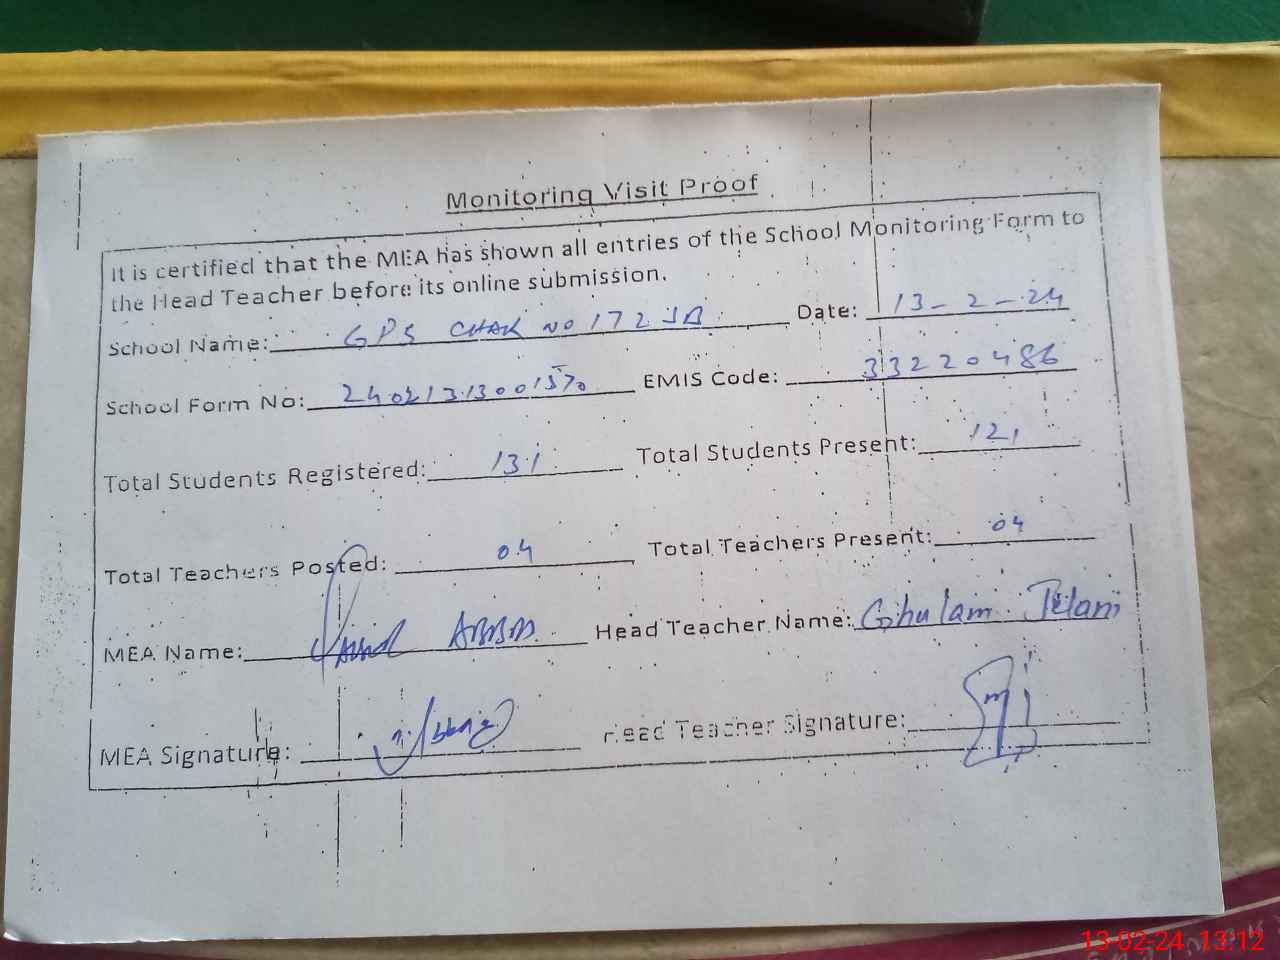 Monitoring Visit Proof
It is certified that the MEA has shown all entries of the School Monitoring Form to
the Head Teacher before its online submission.
School Name: GPS CHAK NO 172 JB Date: 13-2-24
School Form No: 24021313001570 EMIS Code: 33220486
Total Students Registered: 131 Total Students Present: 121
Total Teachers Posted: 04 Total Teachers Present: 04
MEA Name: Head Teacher Name: Ghulam Jelani
MEA Signature: Head Teacher Signature:
13-02-24 13:12